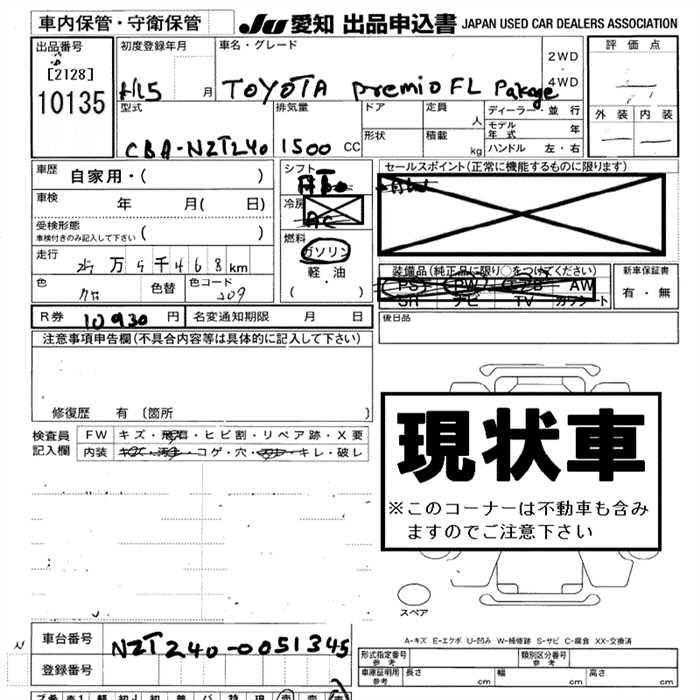 車内保管・守衛保管
JU 愛知 出品申込書 JAPAN USED CAR DEALERS ASSOCIATION
出品番号
[2128]
10135
初度登録年月
H15 月
車名・グレード
TOYOTA premio FL Pakage
2WD
・
4WD
評価点
外装 内装
型式
CBA-NZT240
排気量
1500 CC
ドア
形状
定員 人
積載 kg
ディーラー・並行
モデル年式 年
ハンドル 左・右
車歴 自家用・( )
車検 年 月( 日)
受検形態
車検付きのみ記入して下さい ( )
走行 万 千468km
色
色替
色コード
209
シフト
冷房
AC
燃料
ガソリン
軽・油
( ・ )
セールスポイント(正常に機能するものに限ります)
装備品(純正品に限り○をつけてください)
PS PW エアB AW
SR ナビ TV カワシート
新車保証書
有・無
R券 10930 円
名変通知期限 月 日
後日品
注意事項申告欄(不具合内容等は具体的に記入して下さい)
修復歴 有 〔箇所 〕
検査員
記入欄
FW キズ・飛石・ヒビ割・リペア跡・X要
内装 コゲ・穴・キレ・破レ
現状車
※このコーナーは不動車も含み
ますのでご注意下さい
スペア
A-キズ E-エクボ U-凹み W-補修跡 S-サビ C-腐食 XX-交換済
車台番号 NZT240-0051345
登録番号
形式指定番号
参考
類別区分番号
参考
車庫証明用
参考
長さ cm
幅 cm
高さ cm